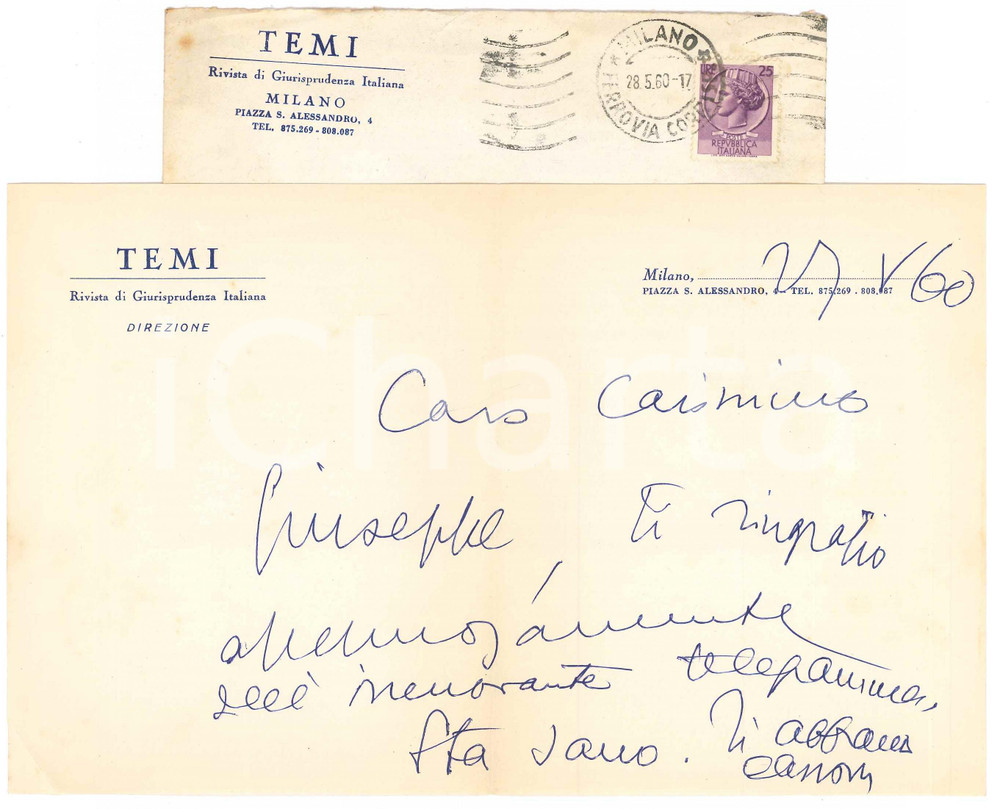 TEMI
Rivista di Giurisprudenza Italiana
MILANO
PIAZZA S. ALESSANDRO, 4
TEL. 875.269 - 808.087
MILANO
28.5.60-17
FERROVIA
LIRE 25
POSTE
REPVBBLICA
ITALIANA
TEMI
Rivista di Giurisprudenza Italiana
DIREZIONE
Milano, 27 V 60
PIAZZA S. ALESSANDRO, 4 - TEL. 875.269 - 808.087
iCharta
Caro Carissimo
Giuseppe Ti ringrazio
affettuosamente
dell' telegramma,
Sta sano. Ti abbraccia